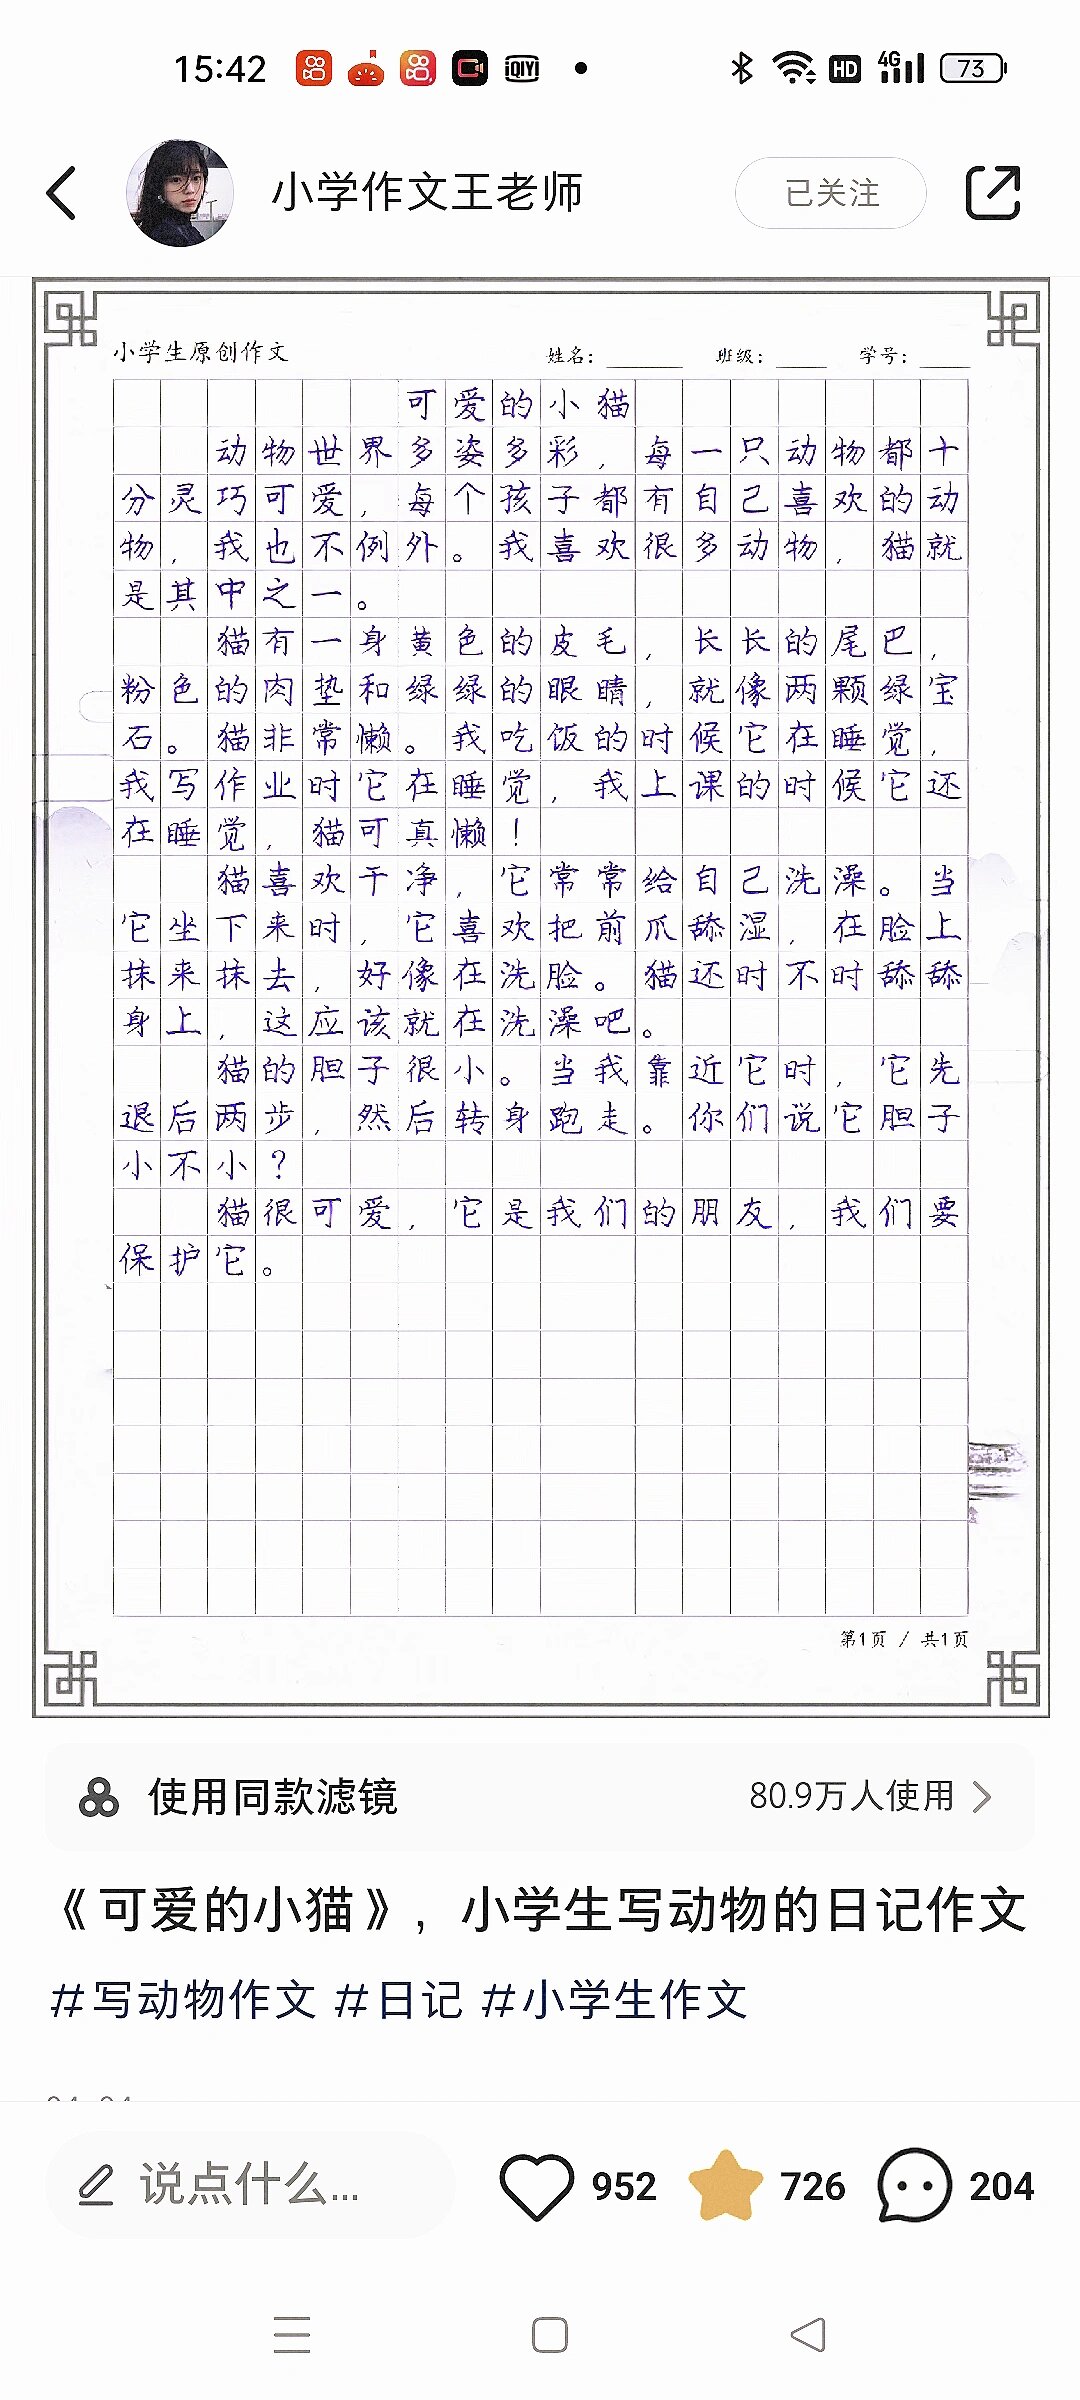 15:42
iQIYI
HD
4G
73
小学作文王老师
已关注
小学生原创作文 姓名: 班级: 学号:
可爱的小猫
动物世界多姿多彩，每一只动物都十
分灵巧可爱，每个孩子都有自己喜欢的动
物，我也不例外。我喜欢很多动物，猫就
是其中之一。
猫有一身黄色的皮毛，长长的尾巴，
粉色的肉垫和绿绿的眼睛，就像两颗绿宝
石。猫非常懒。我吃饭的时候它在睡觉，
我写作业时它在睡觉，我上课的时候它还
在睡觉，猫可真懒！
猫喜欢干净，它常常给自己洗澡。当
它坐下来时，它喜欢把前爪舔湿，在脸上
抹来抹去，好像在洗脸。猫还时不时舔舔
身上，这应该就在洗澡吧。
猫的胆子很小。当我靠近它时，它先
退后两步，然后转身跑走。你们说它胆子
小不小？
猫很可爱，它是我们的朋友，我们要
保护它。
第1页 / 共1页
使用同款滤镜
80.9万人使用
《可爱的小猫》，小学生写动物的日记作文
#写动物作文 #日记 #小学生作文
说点什么...
952
726
204